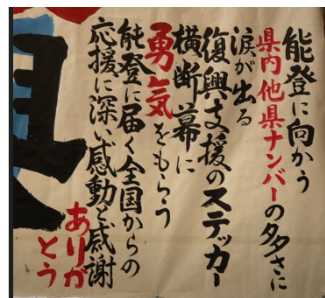 能登に向かう
県内他県ナンバーの多さに
涙が出る
復興支援のステッカー
横断幕に
勇気をもらう
能登に届く全国からの
応援に深い感動と感謝
ありが
とう